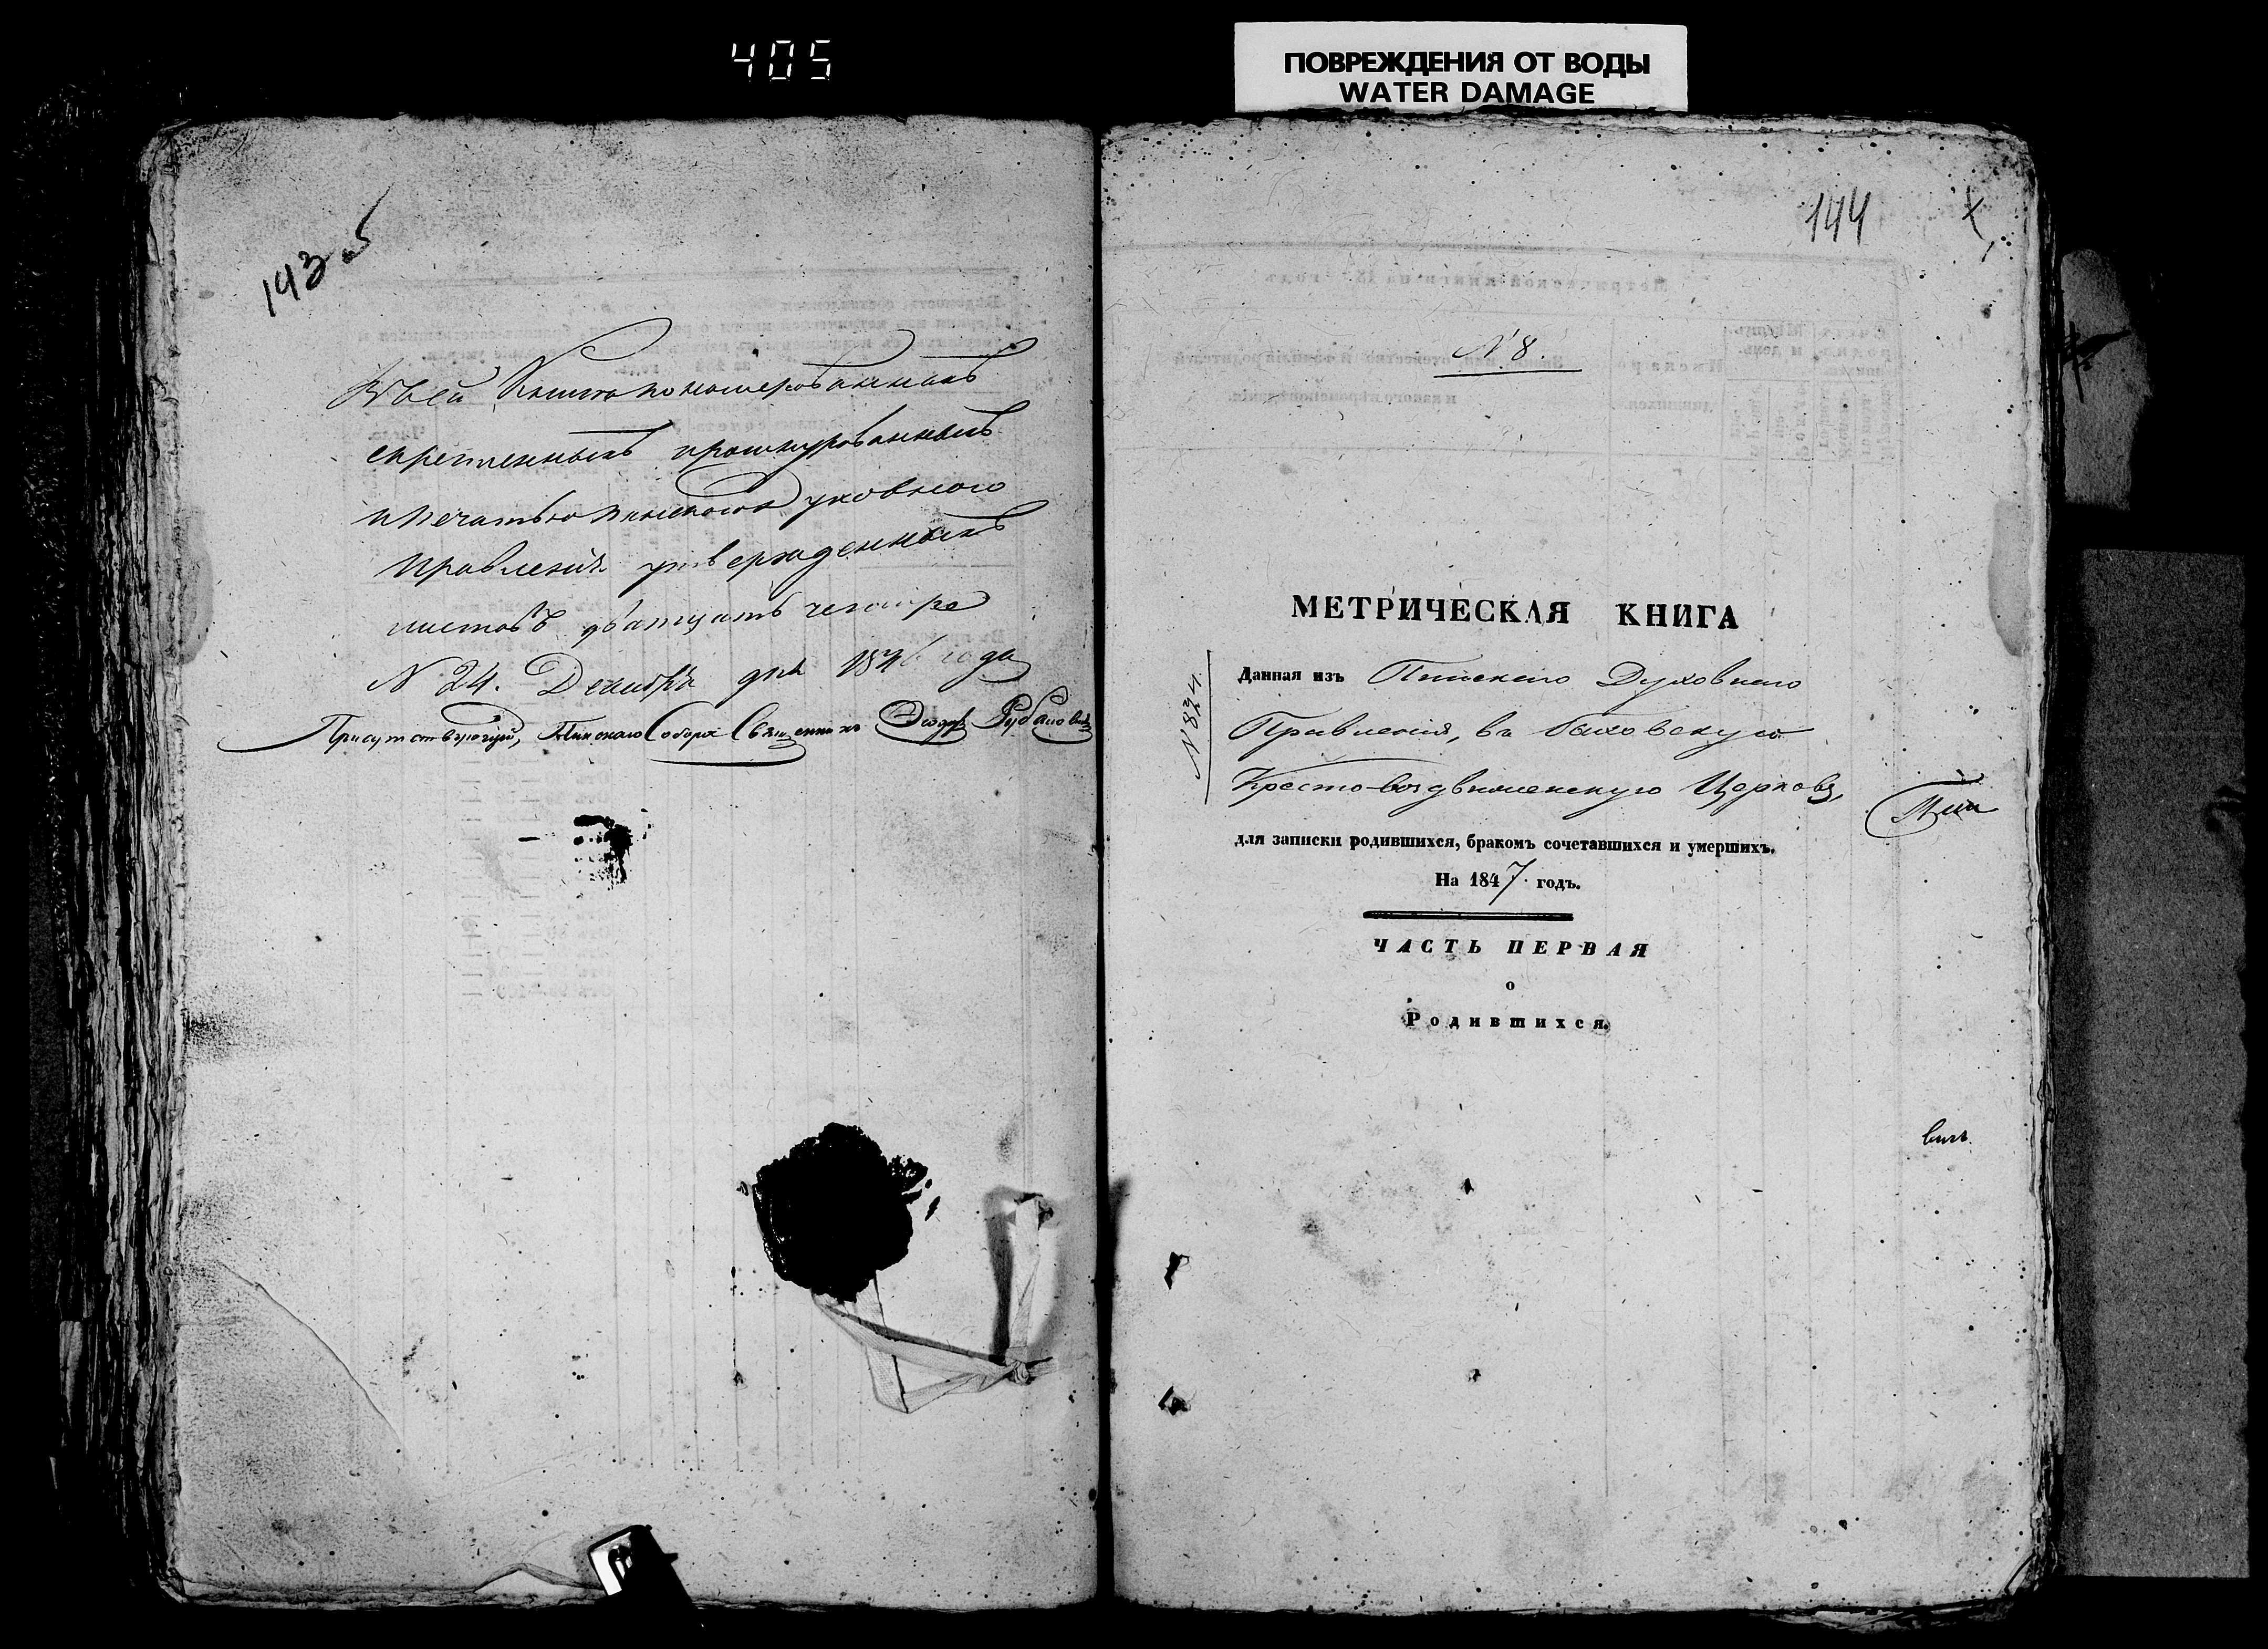 405
ПОВРЕЖДЕНИЯ ОТ ВОДЫ
WATER DAMAGE
143 об
Въ сей Книге пономерованныхъ
скрепленныхъ прошнурованныхъ
и печатью Пинскаго Духовнаго
Правленія утвержденныхъ
листовъ дватцать четыре
N 24. Декабря дня 1846 года
Присутствующій, Пинскаго Собора Священникъ Феодоръ Рубановичъ
144
N 8.
МЕТРИЧЕСКАЯ КНИГА
N 824.
Данная изъ Пинскаго Духовнаго
Правленія, въ Быховскую
Кресто-воздвиженскую Церковь,
для записки родившихся, бракомъ сочетавшихся и умершихъ.
На 1847 годъ.
ЧАСТЬ ПЕРВАЯ
о
Родившихся.